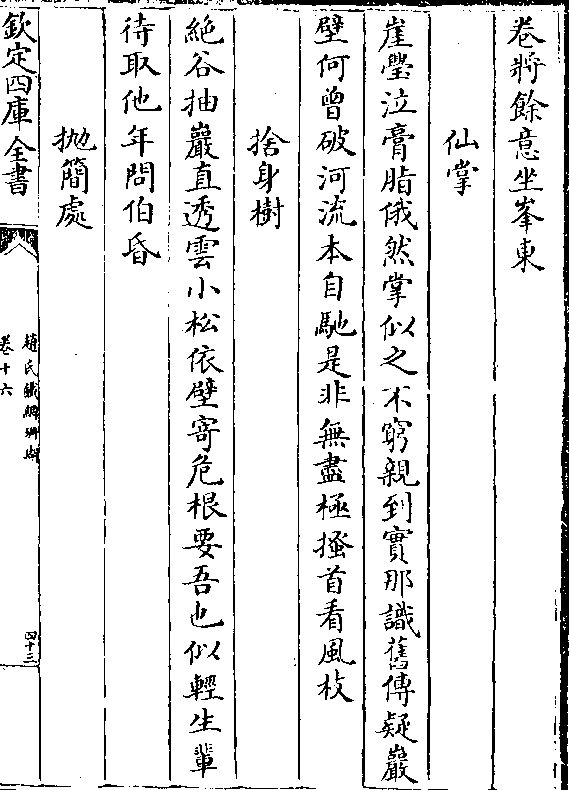 卷將餘意坐峯東
仙掌
崖瑩泣膏脂俄然掌似之不窮親到實那識舊傳疑巖
壁何曽破河流本自馳是非無盡極搔首看風枝
捨身樹
絶谷抽巖直透雲小松依壁寄危根要吾也似輕生輩
待取他年問伯昏
拋簡處
欽定四庫全書
趙氏鐵網珊瑚
卷十六
四十三